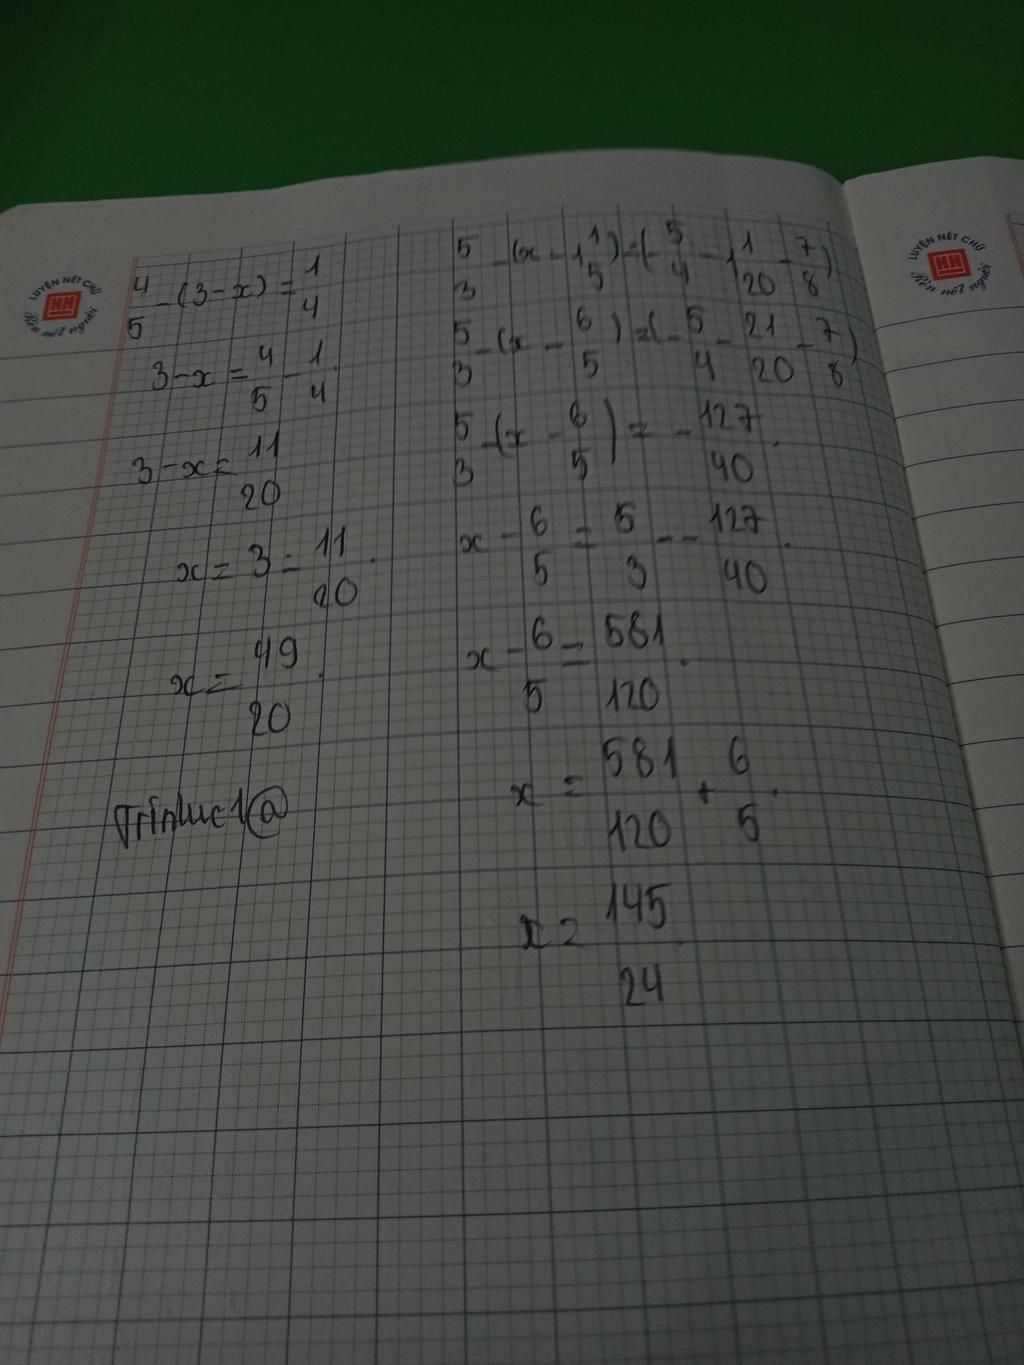 LUYỆN NÉT CHỮ
HH
Rèn nết người
4/5 - (3 - x) = 1/4
3 - x = 4/5 - 1/4.
3 - x = 11/20
x = 3 - 11/20.
x = 49/20.
5/3 - (x - 1 1/5) = (- 5/4 - 1 1/20 - 7/8)
5/3 - (x - 6/5) = (- 5/4 - 21/20 - 7/8)
5/3 - (x - 6/5) = - 127/40.
x - 6/5 = 5/3 - - 127/40.
x - 6/5 = 581/120.
x = 581/120 + 6/5.
x = 145/24
LUYỆN NÉT CHỮ
HH
Rèn nết người